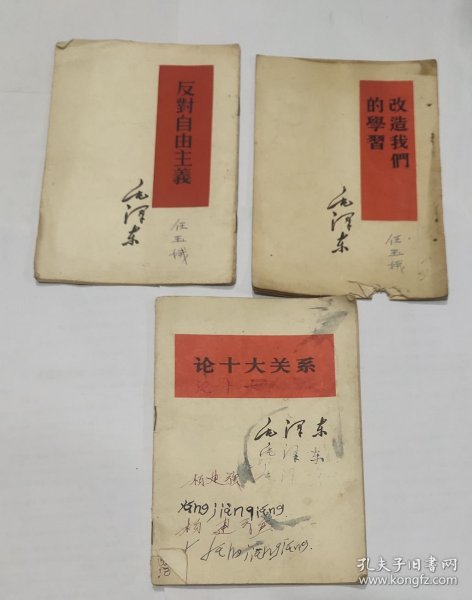 反對自由主義
毛泽东
任玉娥
改造我們
的學習
毛泽东
任玉娥
论十大关系
论十
毛泽东
毛泽东
毛泽
杨建
杨建
孔夫子旧书网
kongfz.com